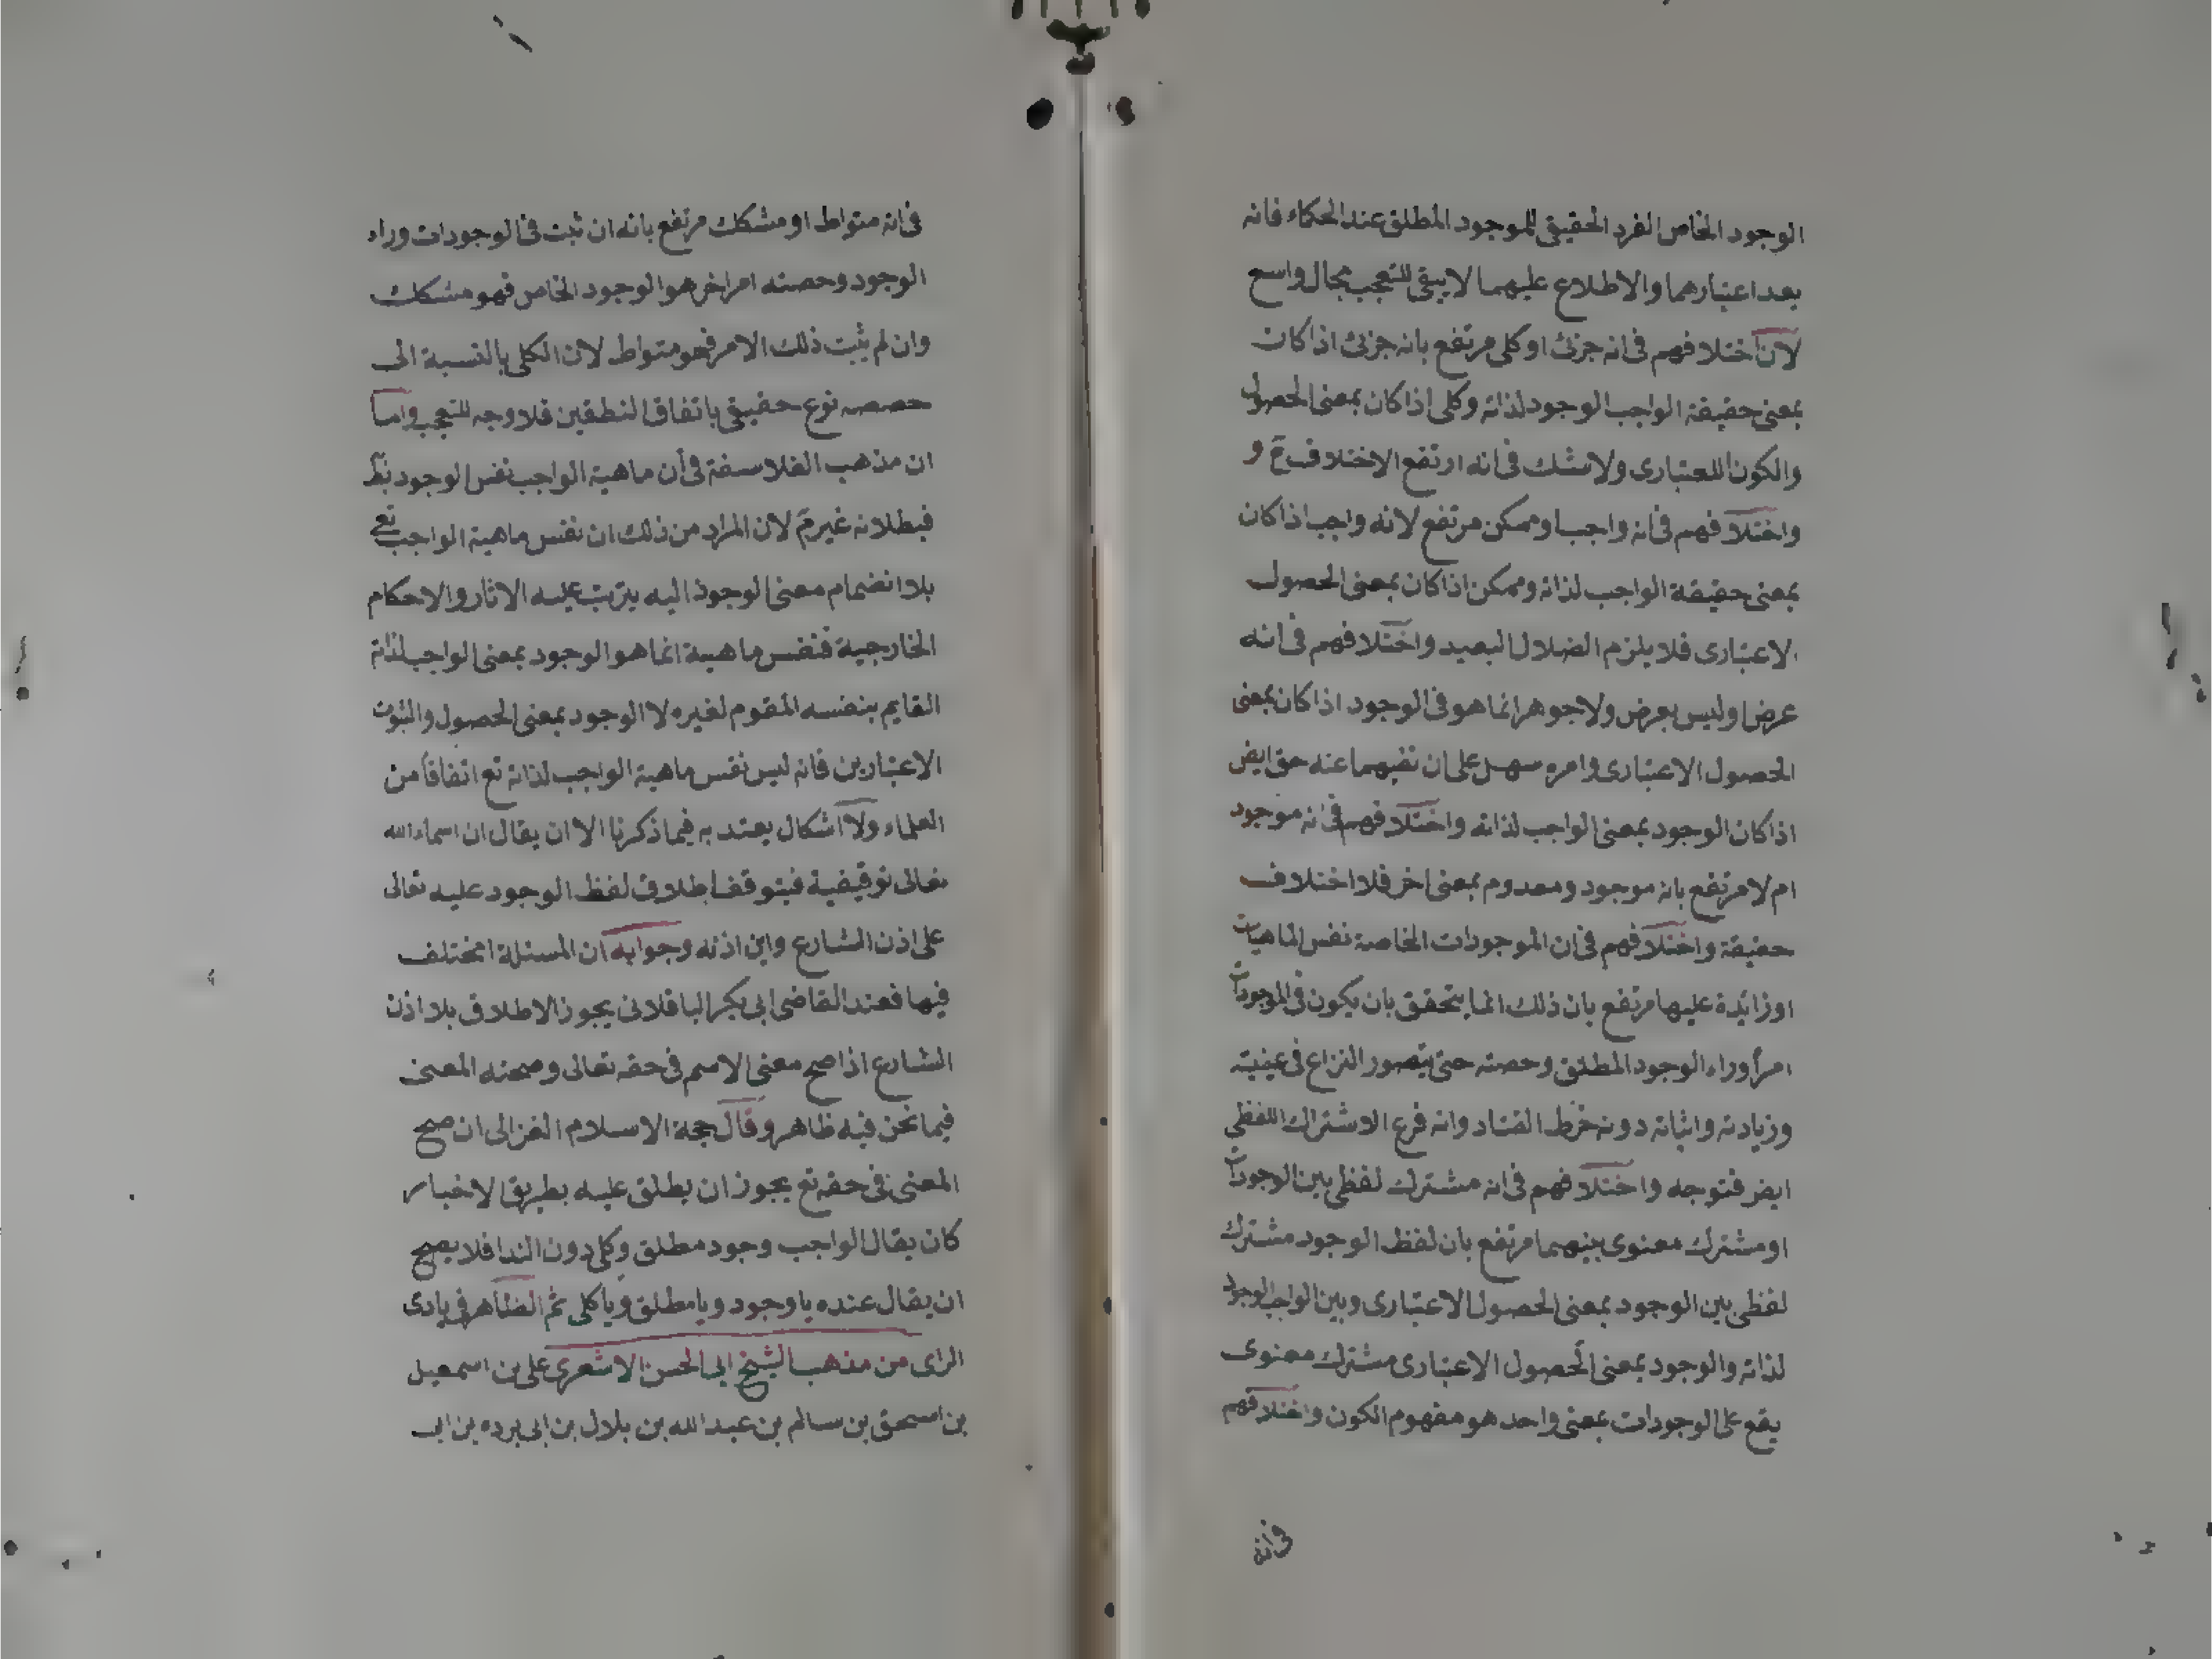 الوجود الخاص الفرد الحقيقى للموجود المطلق عند الحكماء فانه
بعد اعتبارهما والاطلاع عليهما لا يبقى للتعجب مجال واسع
لان اختلافهم فى انه جزئ او كلى مرتفع بانه جزئ اذا كان
بمعنى حقيقة الواجب الوجود لذاته وكلى اذا كان بمعنى الحصول
والكون اللعتبارى ولا شك فى انه ارتفع الاختلاف ح و
واختلافهم فى انه واجب او ممكن مرتفع لانه واجب اذا كان
بمعنى حقيقة الواجب لذاته وممكن اذا كان بمعنى الحصول
الاعتبارى فلا يلزم الضلال البعيد واختلافهم فى انه
عرض او ليس بعرض ولا جوهر انما هو فى الوجود اذا كان بمعنى
الحصول الاعتبارى وامره سهل على ان نفيهما عنه حق ايض
اذا كان الوجود بمعنى الواجب لذاته واختلافهم فى انه موجود
ام لا مرتفع بانه موجود ومعدوم بمعنى اخر فلا اختلاف
حقيقة واختلافهم فى ان الموجودات الخاصة نفس الماهيات
او زائدة عليها مرتفع بان ذلك انما يتحقق بان يكون فى الموجودات
امرا وراء الوجود المطلق وحصته حتى يتصور النزاع فى عينيته
وزيادته واثباته دونه خرط القتاد وانه فرع الاشتراك اللفظى
ايض فتوجه واختلافهم فى انه مشترك لفظى بين الوجودات
او مشترك معنوى بينهما مرتفع بان لفظ الوجود مشترك
لفظى بين الوجود بمعنى الحصول الاعتبارى وبين الواجب الوجود
لذاته والوجود بمعنى الحصول الاعتبارى مشترك معنوى
يقع على الوجودات بمعنى واحد هو مفهوم الكون واختلافهم
فى انه
فى انه متواط او مشكك مرتفع بانه ان ثبت فى الوجودات وراء
الوجود وحصته امر اخر هو الوجود الخاص فهو مشكك
وان لم يثبت ذلك الامر فهو متواط لان الكلى بالنسبة الى
حصصه نوع حقيقى باتفاق المنطقين فلا وجه للتعجب واما
ان مذهب الفلاسفة فى أن ماهية الواجب نفس الوجود بط
فبطلانه غير م لان المراد من ذلك ان نفس ماهية الواجب تع
بلا انضمام معنى الوجود اليه يترتب عليه الاثار والاحكام
الخارجية فنفس ماهية انما هو الوجود بمعنى الواجب لذاته
القايم بنفسه المقوم لغيره لا الوجود بمعنى الحصول والثبوت
الاعتبارين فانه ليس نفس ماهية الواجب لذاته تع اتفاقا من
العلماء ولا اشكال يعتد به فيما ذكرنا الا ان يقال ان اسماء الله
تعالى توقيفية فيتوقف اطلاق لفظ الوجود عليه تعالى
على اذن الشارع واين اذنه وجوابه ان المسئلة اختلف
فيها فعند القاضى ابى بكر الباقلانى يجوز الاطلاق بلا اذن
الشارع اذا صح معنى الاسم فى حقه تعالى وصحته المعنى
فيما نحن فيه ظاهر وقال حجة الاسلام الغزالى ان صح
المعنى فى حقه تع يجوز ان يطلق عليه بطريق الاخبار
كان يقال الواجب وجود مطلق وكلى دون الندا فلا يصح
ان يقال عنده يا وجود ويا مطلق ويا كلى ثم الظاهر فى بادى
الراى من مذهب الشيخ ابى الحسن الاشعرى على بن اسمعيل
بن اسحق بن سالم بن عبد الله بن بلال بن ابى برده بن ابى